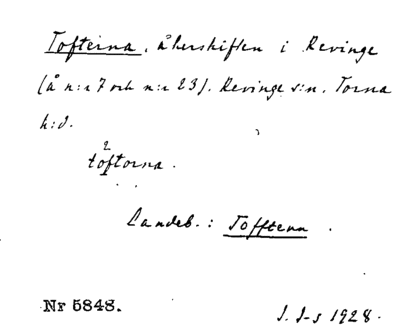 Tofterna, åkerskiften i Revinge
(å n:r 7 och n:r 23). Revinge s:n. Torna
h:d.
2
toftorna.
Landeb.: Tofftena.
Nr 5848.
J. J-s 1928.